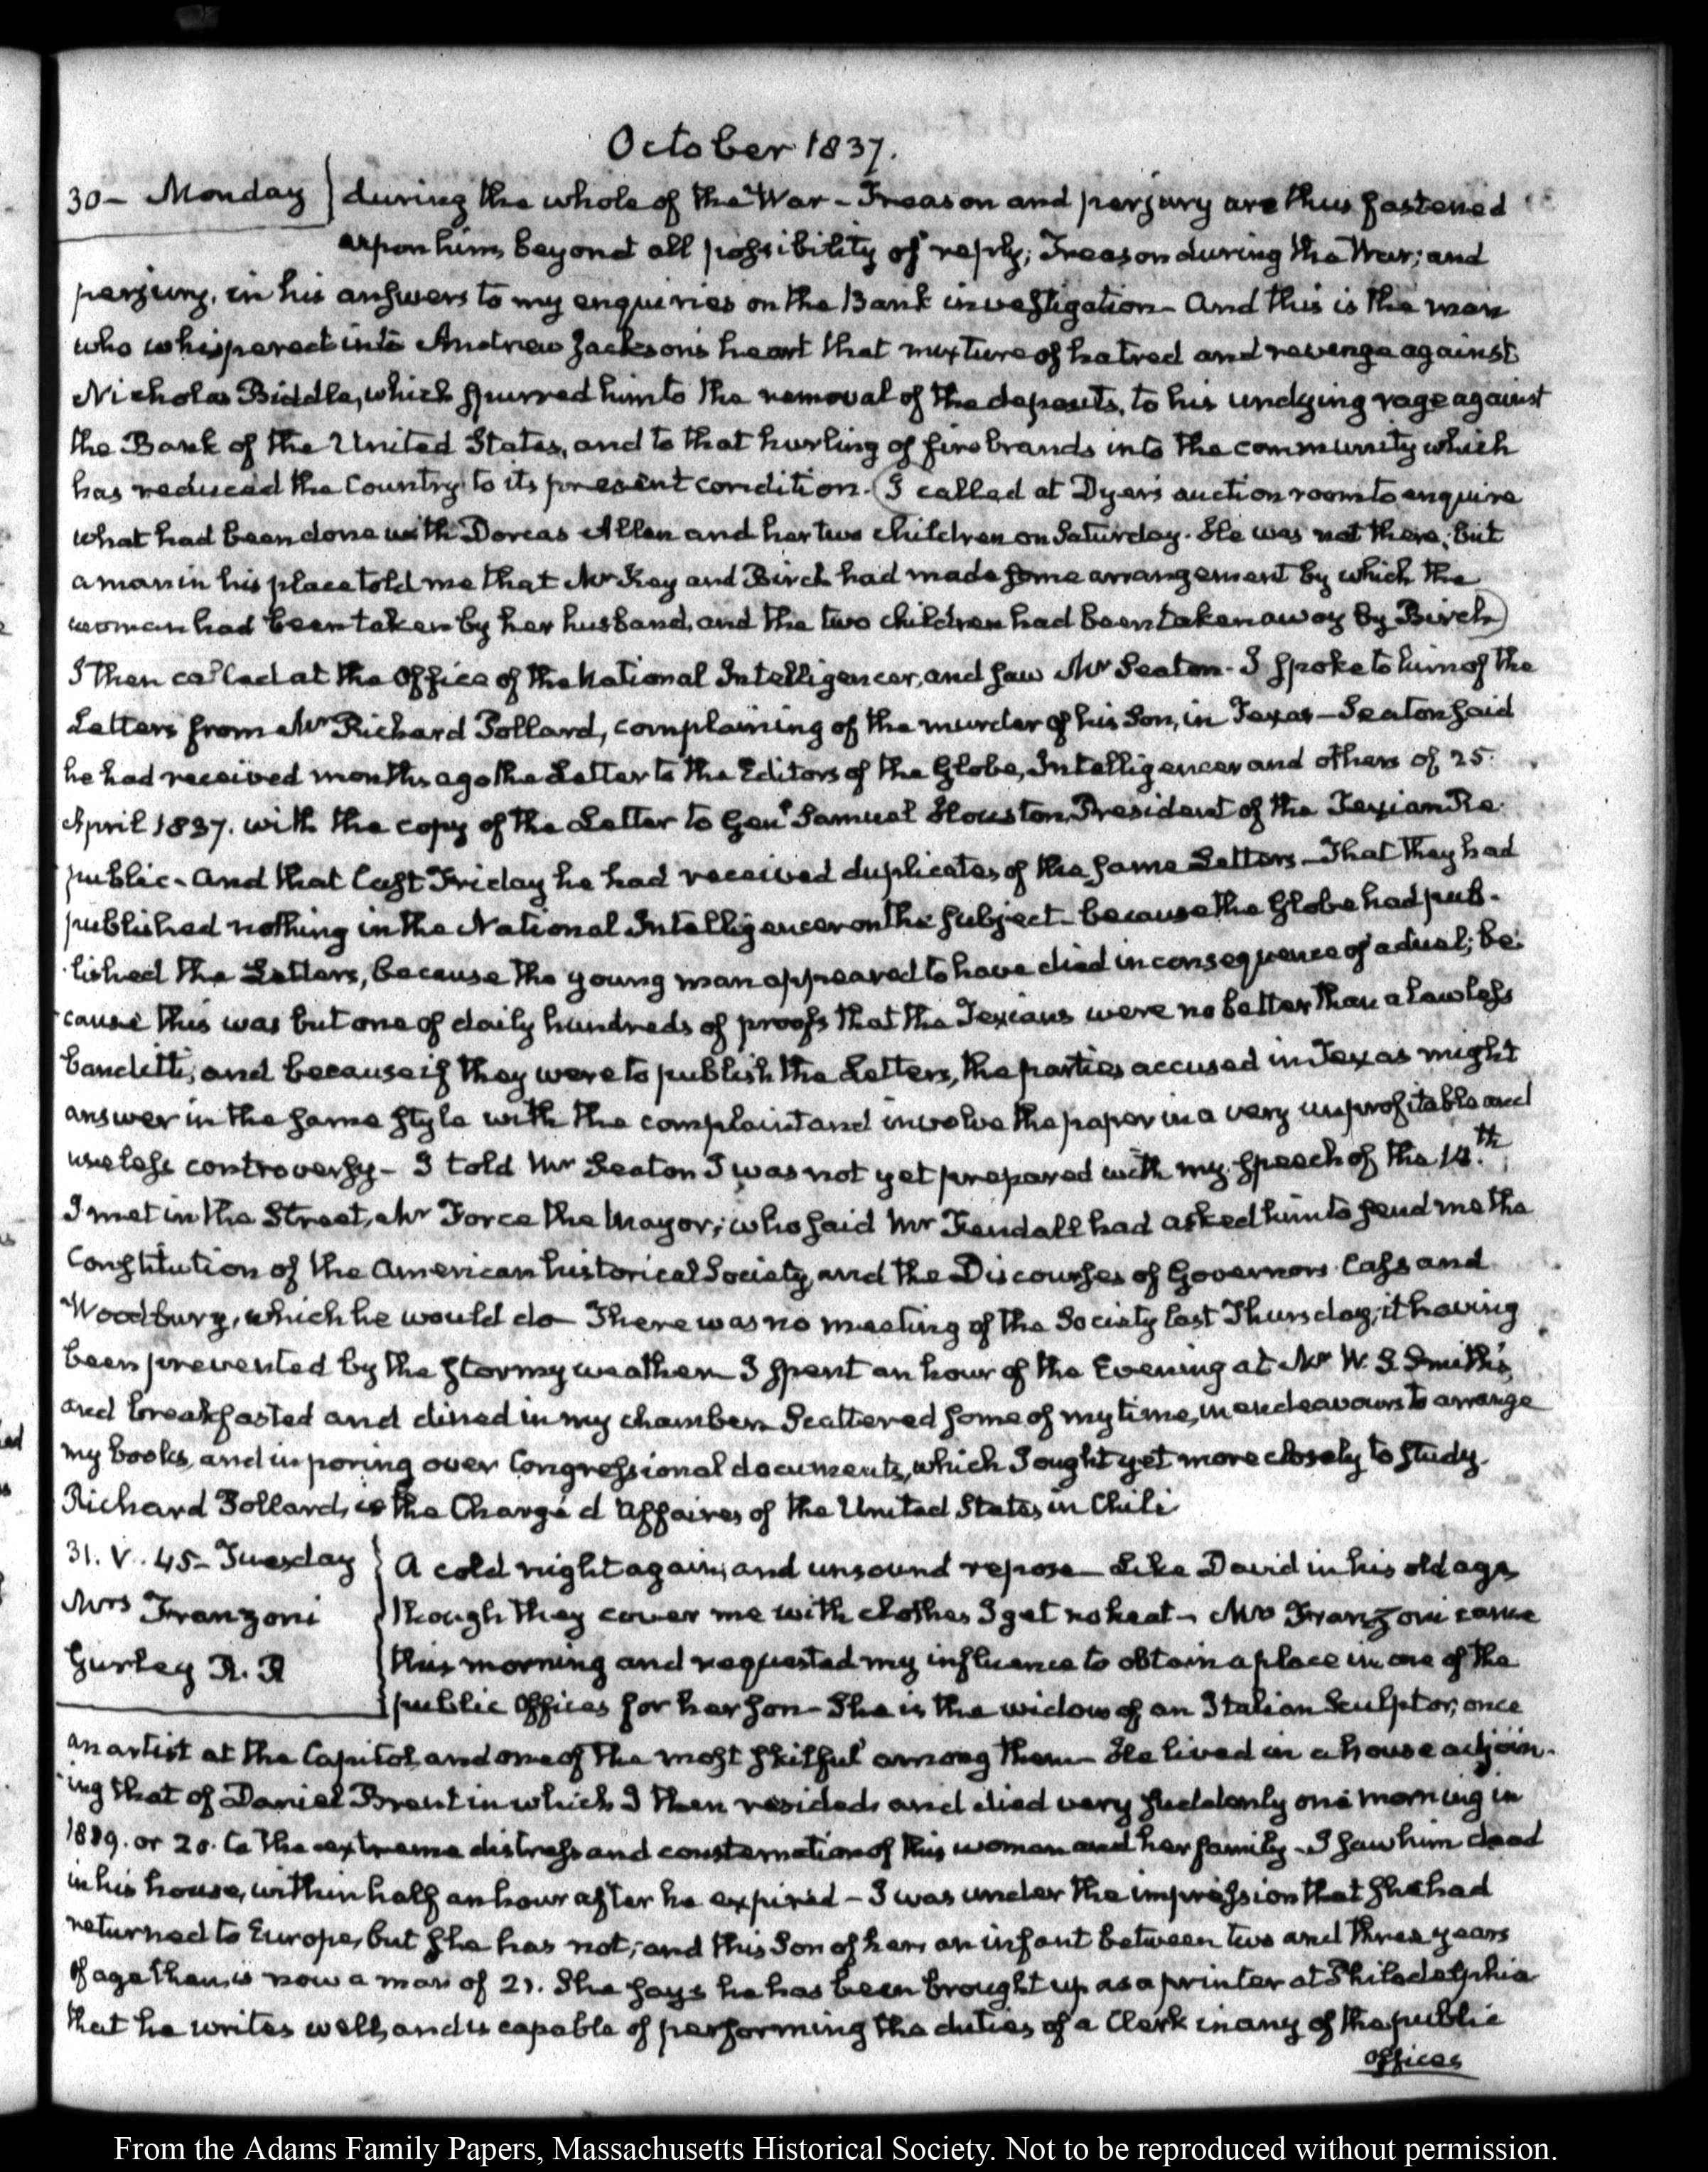 October 1837.
30 - Monday } during the whole of the War - Treason and perjury are thus fastened
upon him, beyond all possibility of reply; Treason during the War; and
perjury, in his answers to my enquiries on the Bank investigation - And this is the man
who whispered into Andrew Jackson's heart that mixture of hatred and revenge against
Nicholas Biddle, which spurred him to the removal of the deposits, to his undying rage against
the Bank of the United States, and to that hurling of firebrands into the community which
has reduced the Country to its present condition. (I called at Dyer's auction room to enquire
what had been done with Dorcas Allen and her two children on Saturday. He was not there; but
a man in his place told me that Mr Key and Birch had made some arrangement by which the
woman had been taken by her husband, and the two children had been taken away by Birch)
I then called at the Office of the National Intelligencer, and saw Mr Seaton - I spoke to him of the
Letters from Mr Richard Pollard, complaining of the murder of his Son, in Texas - Seaton said
he had received months ago the Letter to the Editors of the Globe, Intelligencer and others of 25.
April 1837. with the copy of the Letter to Genl Samuel Houston, President of the Texian Re-
public - And that last Friday he had received duplicates of the same Letters - That they had
published nothing in the National Intelligencer on the subject - because the Globe had pub-
lished the Letters, because the young man appeared to have died in consequence of a duel; be-
cause this was but one of daily hundreds of proofs that the Texians were no better than a lawless
banditti, and because if they were to publish the Letters, the parties accused in Texas might
answer in the same style with the complaint and involve the paper in a very unprofitable and
useless controversy - I told Mr Seaton I was not yet prepared with my speech of the 14.th
I met in the Street, Mr Force the Mayor; who said Mr Kendall had asked him to send me the
Constitution of the American historical Society, and the Discourses of Governors Cass and
Woodbury, which he would do - There was no meeting of the Society last Thursday; it having
been prevented by the stormy weather - I spent an hour of the Evening at Mr W. S. Smith's,
and breakfasted and dined in my chamber. Scattered some of my time, in endeavours to arrange
my books, and in poring over Congressional documents, which I ought yet more closely to study.
Richard Pollard, is the Chargé d'Affaires of the United States in Chili
31. V. 45 - Tuesday } A cold night again; and unsound repose - Like David in his old age,
Mrs Franzoni though they cover me with clothes I get no heat - Mrs Franzoni came
Gurley R. R this morning and requested my influence to obtain a place in one of the
public Offices for her son - She is the widow of an Italian Sculptor, once
an artist at the Capitol, and one of the most skilful among them - He lived in a house adjoin-
ing that of Daniel Brent in which I then resided, and died very suddenly one morning in
1819. or 20. to the extreme distress and consternation of this woman and her family - I saw him dead
in his house, within half an hour after he expired - I was under the impression that she had
returned to Europe, but she has not; and this Son of hers an infant between two and three years
of age then, is now a man of 21. She says he has been brought up as a printer at Philadelphia
that he writes well, and is capable of performing the duties of a Clerk in any of the public
offices
From the Adams Family Papers, Massachusetts Historical Society. Not to be reproduced without permission.